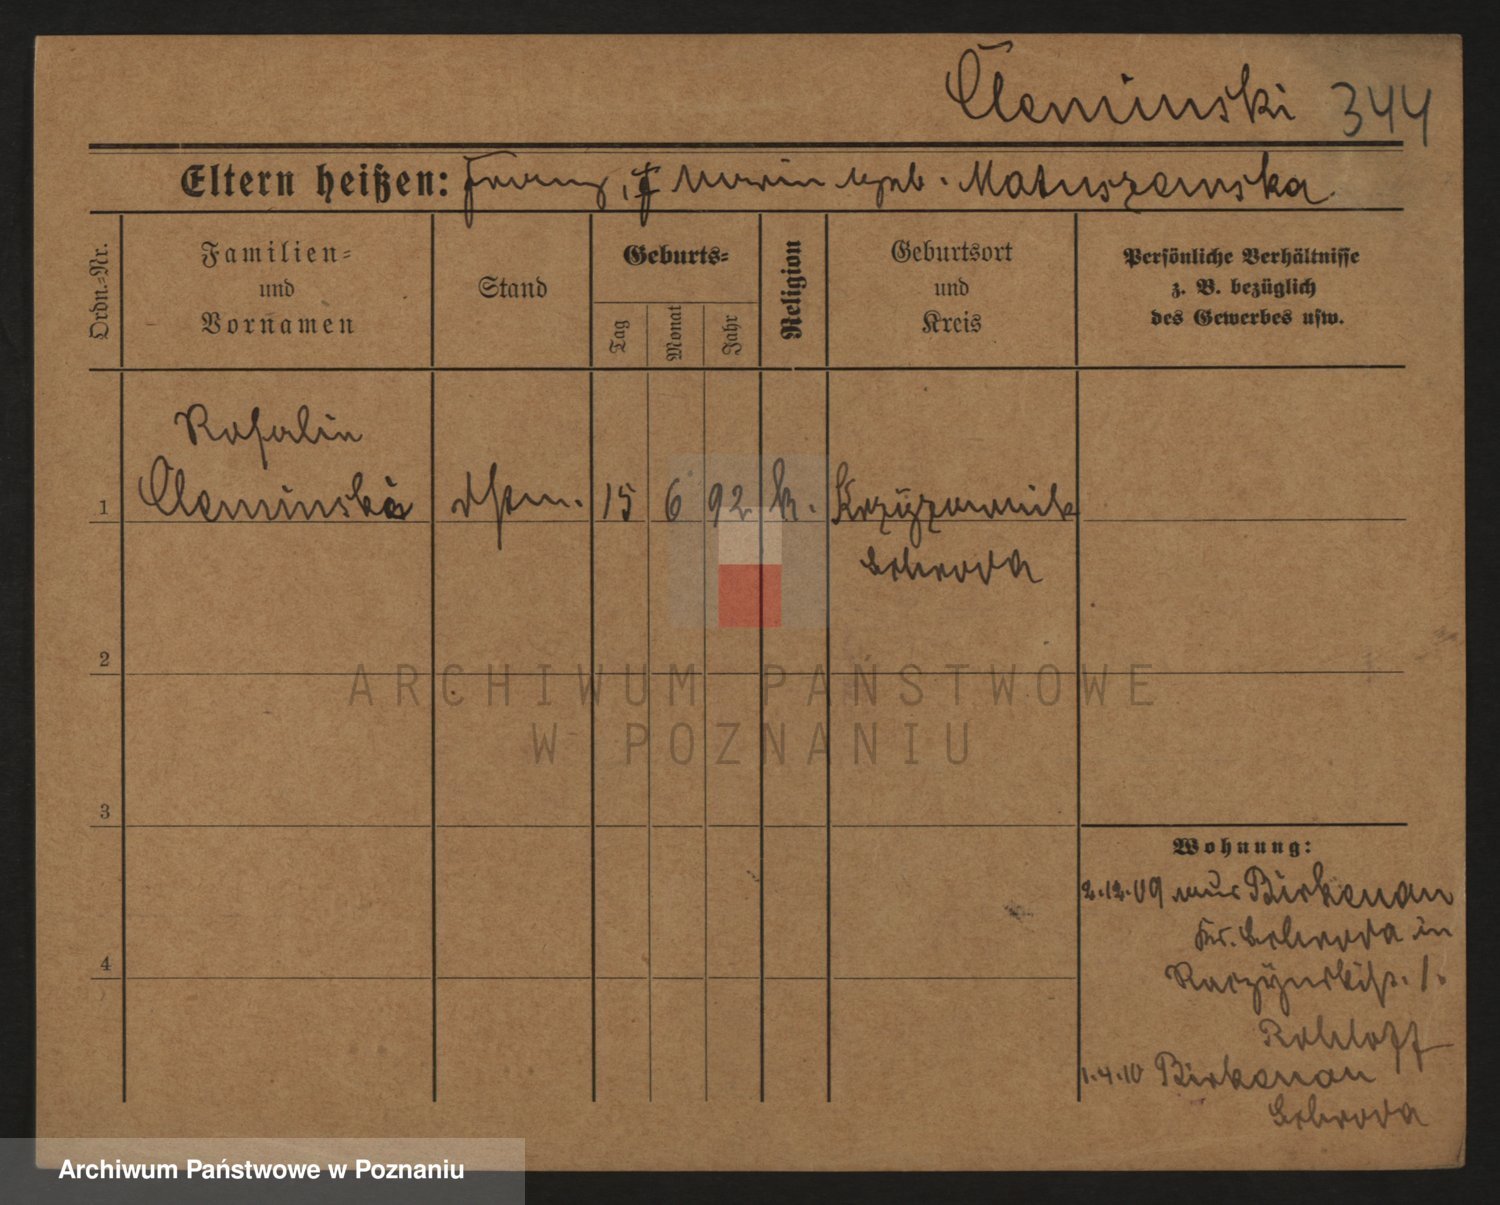 Cleminski 344
Eltern heißen: Franz, † Marie geb. Matuszewska
Ordn.=Nr.
Familien=
und
Vornamen
Stand
Geburts=
Tag
Monat
Jahr
Religion
Geburtsort
und
Kreis
Persönliche Verhältnisse
z. B. bezüglich
des Gewerbes usw.
Rosalie
1 Cleminska 15 6 92 k. Krzyzownik
Schroda
2
3
4
Wohnung:
2.12.09 aus Birkenau
Kr. Schroda in
Raczynskistr. 1.
Rohloff
1.4.10 Birkenau
Schroda
ARCHIWUM PAŃSTWOWE
W POZNANIU
Archiwum Państwowe w Poznaniu